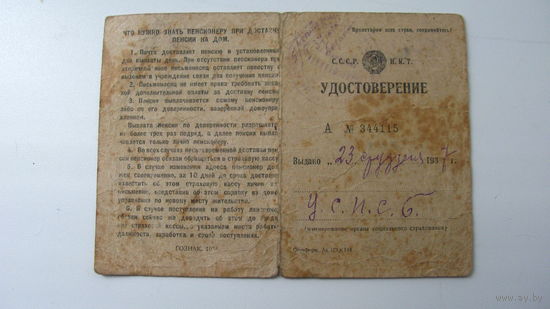 ЧТО НУЖНО ЗНАТЬ ПЕНСИОНЕРУ ПРИ ДОСТАВКЕ
ПЕНСИИ НА ДОМ.
1. Почта доставляет пенсию в установленные
для выплаты дни. При отсутствии пенсионера при
письмоносец оставит повестку с
вызовом в учреждение связи для получения пенсии.
2. Письмоносец не имеет права требовать
дополнительной оплаты за доставку пенсии
3. Пенсия выплачивается самому пенсионеру
либо по его доверенности, заверенной домоуправлением.
Выплата пенсии по доверенности разрешается
не более трех раз подряд, а далее пенсия
только лично пенсионеру.
4. Во всех случаях несвоевременной доставки
пенсионер обязан обращаться в страховую кассу
5. В случае изменения адреса пенсионер должен
за 10 дней до срока доставки
известить об этом страховую кассу лично или
письменно, представив об этом справку из домоуправления
по новому месту жительства.
6. В случае поступления на работу
обязан сейчас же доводить об этом до сведения
страховой кассы, с указанием места работы
должности, заработка и срока поступления.
ГОЗНАК. 19
Пролетарии всех стран, соединяйтесь!
С.С.С.Р. Н.К.Т.
УДОСТОВЕРЕНИЕ
А № 344115
Выдано „23 1937 г.
У.С.П.С.Б.
(наименование органа социального страхования)